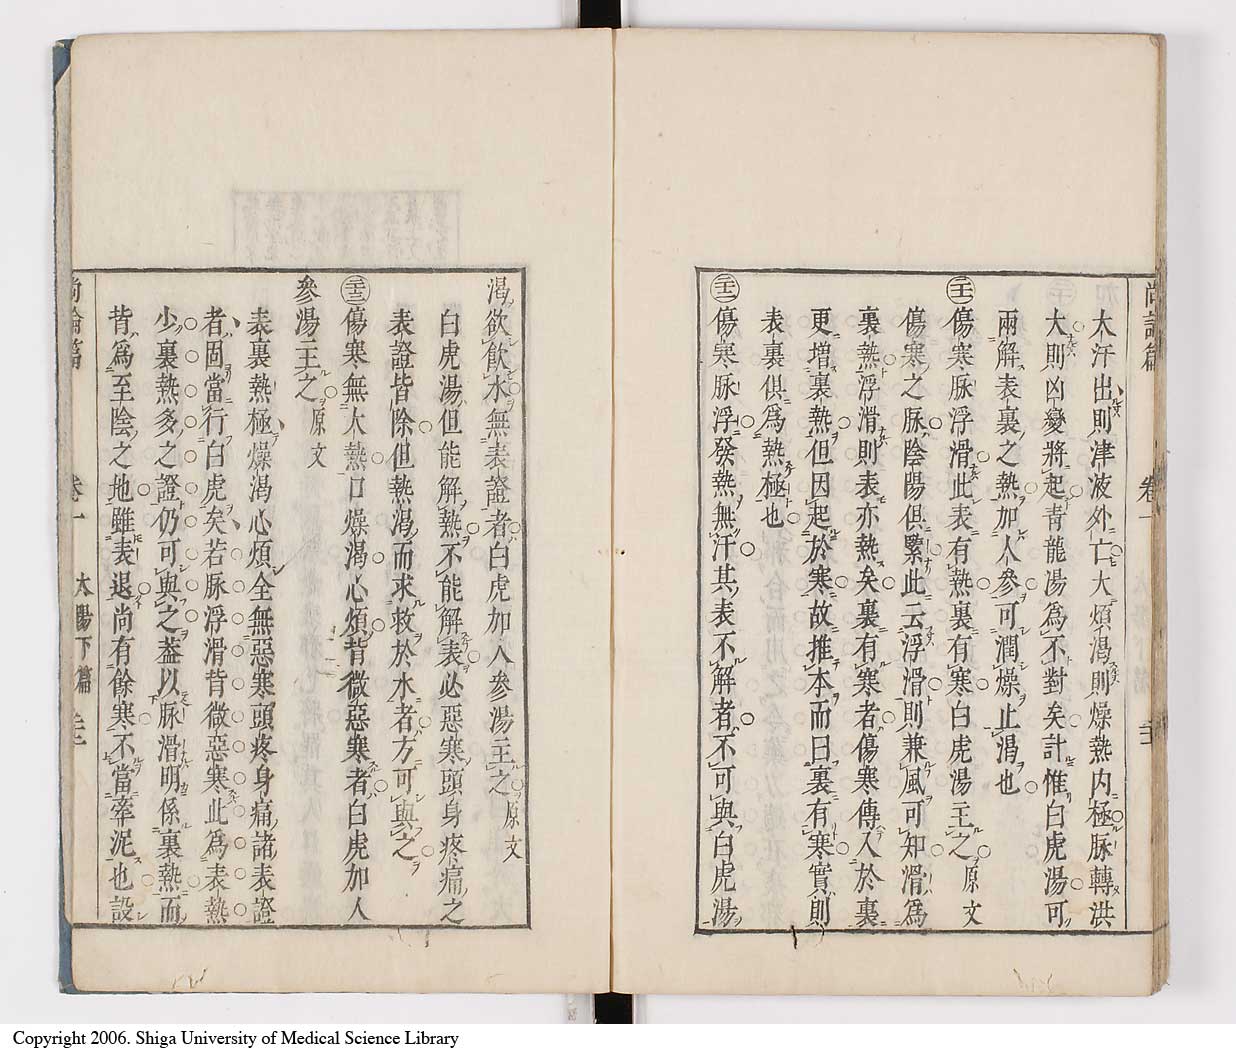 尚論篇 卷一
大汗出則津液外亡大煩渴則燥熱内極脉轉洪
大則凶變將起青龍湯爲不對矣計惟白虎湯可
兩解表裏之熱加人參可潤燥止渴也
傷寒脉浮滑此表有熱裏有寒白虎湯主之 原文
傷寒之脉陰陽俱緊此云浮滑則兼風可知滑爲
裏熱浮滑則表亦熱矣裏有寒者傷寒傳入於裏
更增裏熱但因起於寒故推本而曰裏有寒實則
表裏俱爲熱極也
傷寒脉浮發熱無汗其表不解者不可與白虎湯
渴欲飲水無表證者白虎加人參湯主之 原文
白虎湯但能解熱不能解表必惡寒頭身疼痛之
表證皆除但熱渴而求救於水者方可與之
傷寒無大熱口燥渴心煩背微惡寒者白虎加人
參湯主之 原文
表裏熱極燥渴心煩全無惡寒頭疼身痛諸表證
者固當行白虎矣若脉浮滑背微惡寒此爲表熱
少裏熱多之證仍可與之葢以脉滑明係裏熱而
背爲至陰之地雖表退尚有餘寒不當牽泥也設
尚論篇 卷一 太陽下篇
Copyright 2006. Shiga University of Medical Science Library